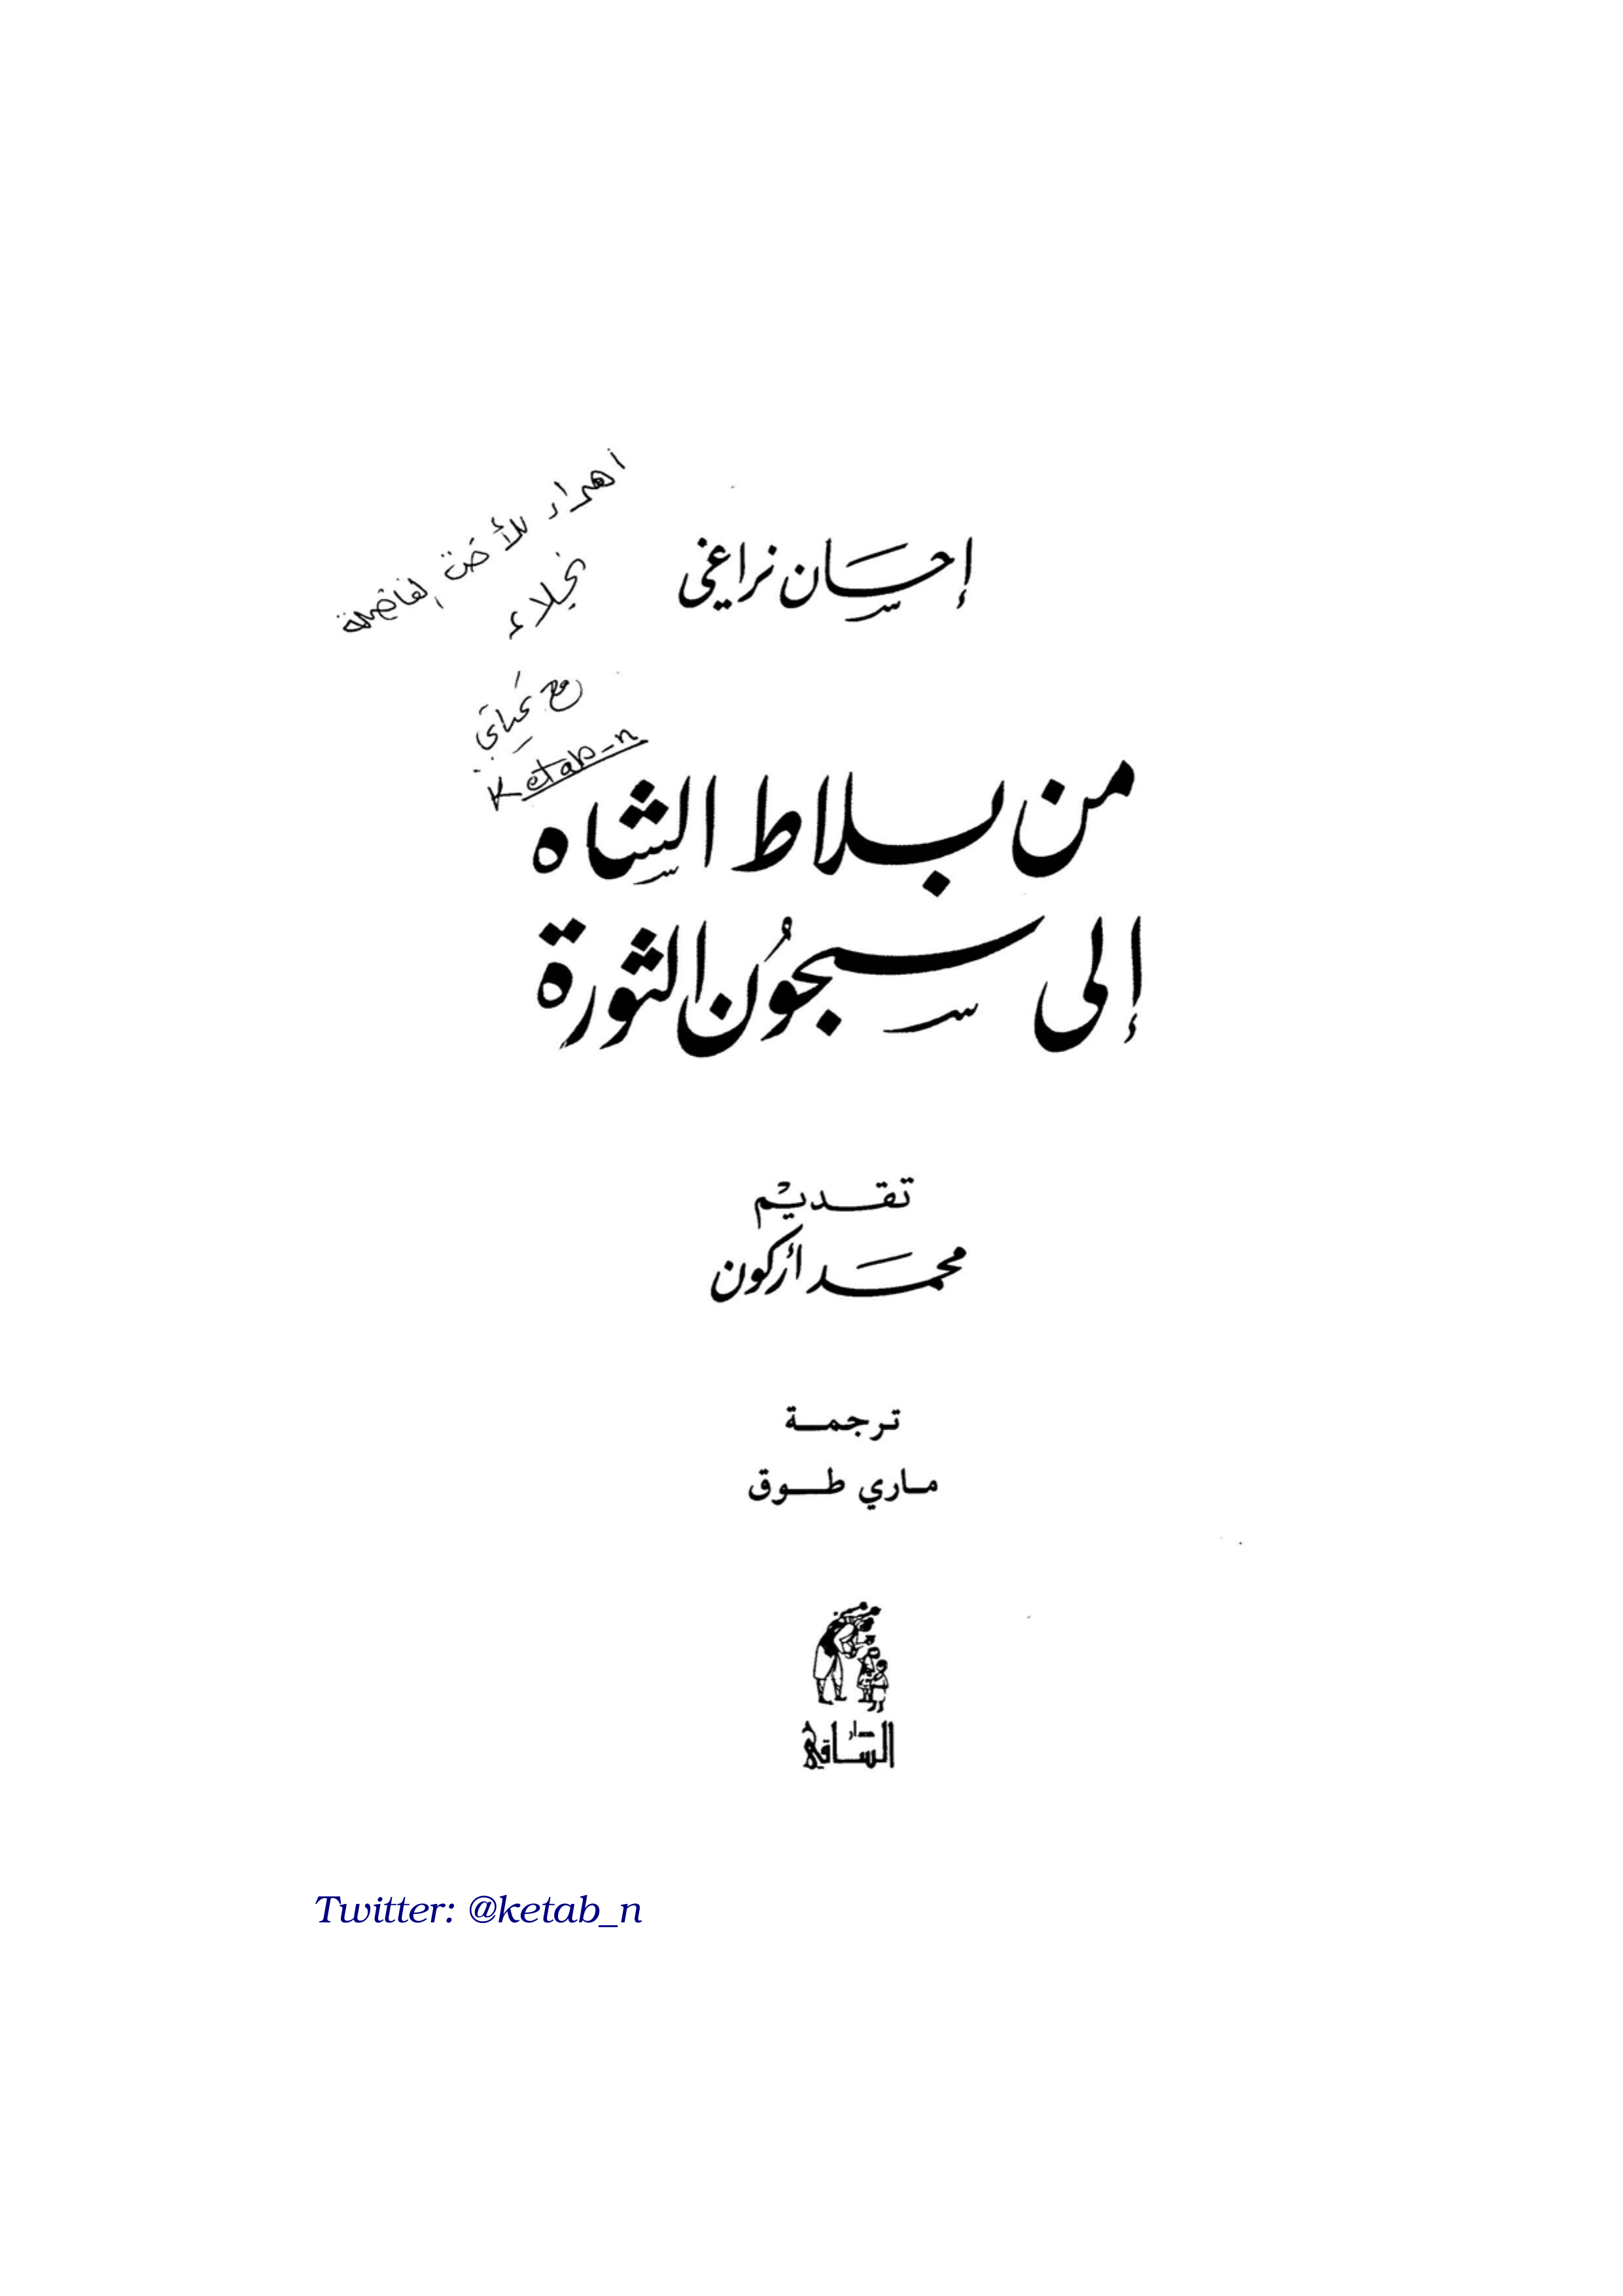 اهداء للأخت الفاضلة
نجلاء
مع تحياتي
Ketab-n
إحسان نراغي
من بلاط الشاه
إلى سجون الثورة
تقديم
محمد أركون
ترجمة
ماري طوق
دار الساقي
Twitter: @ketab_n